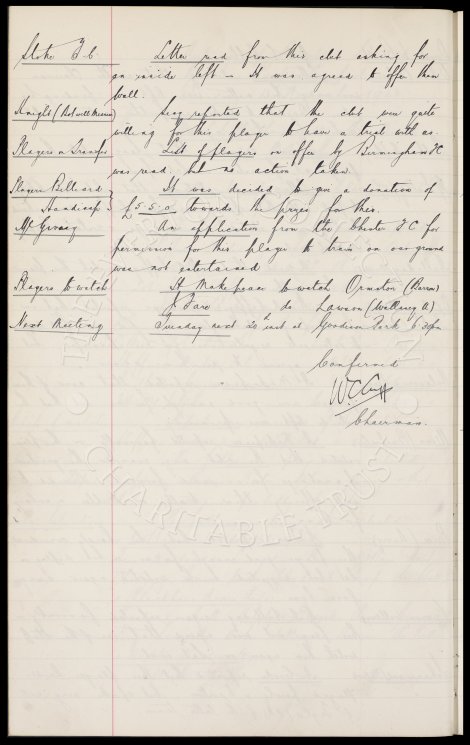 Stoke F.C. Letter read from this club asking for
an inside left - It was agreed to offer them
Wall.
Knight (Rotwill Mission) Secy reported that the club were quite
willing for this player to have a trial with us.
Players on Transfer List of players on offer by Birmingham FC
was read but no action taken.
Players Billiard It was decided to give a donation of
Handicap £5-5-0 towards the prizes for this.
An application from the Chester F C for
permission for this player to train on our ground
was not entertained
Players to watch A Makepeace to watch Ormston (Barrow)
J Fare do Lawson (Wallasey A)
Next Meeting Tuesday next 20th inst at Goodison Park 6.30pm
Confirmed
W.C. Cuff
Chairman.
CHARITABLE TRUST